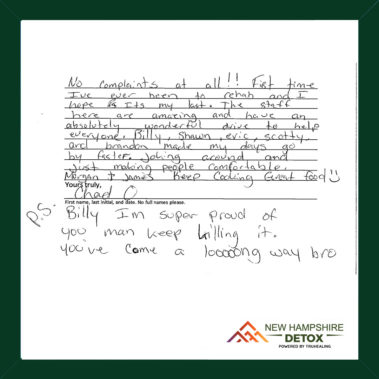 No complaints at all!! First time
I've ever been to rehab and I
hope its my last. The staff
here are amazing and have an
absolutely wonderful drive to help
everyone. Billy, Shawn, eric, scotty,
and brandon made my days go
by faster. Joking around and
Just making people comfortable.
Morgan + James keep Cooking Great food
Yours truly,
Chad O
First name, last initial, and date. No full names please.
P.S. Billy I'm super proud of
you man keep killing it.
you've come a looooong way bro
NEW HAMPSHIRE
DETOX
POWERED BY TRUHEALING